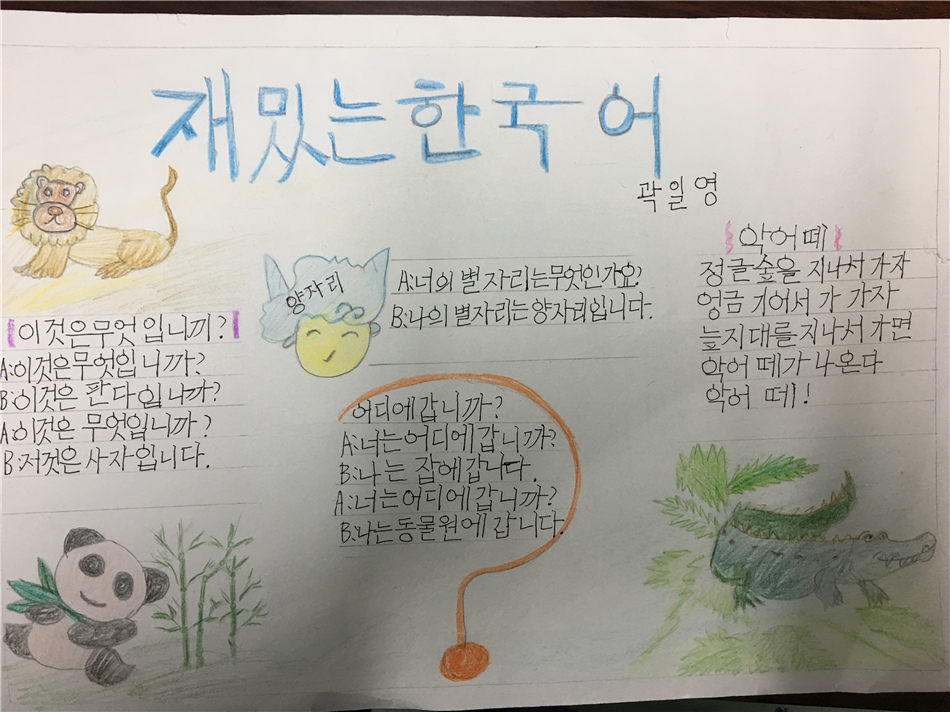 재밌는한국어
곽일영
이것은무엇입니끼?
A:이것은무엇입니까?
B:이것은 판다입니까?
A:이것은 무엇입니까?
B:저것은사자입니다.
양자리
A:너의 별자리는무엇인가요?
B:나의별자리는양자리입니다.
어디에갑니까?
A:너는어디에갑니까?
B:나는 집에갑니다.
A:너는어디에갑니까?
B:나는동물원에 갑니다.
악어떼
정글숲을 지나서가자
엉금 기어서 가 가자
늪지대를지나서가면
악어 떼가나온다
악어 떼!